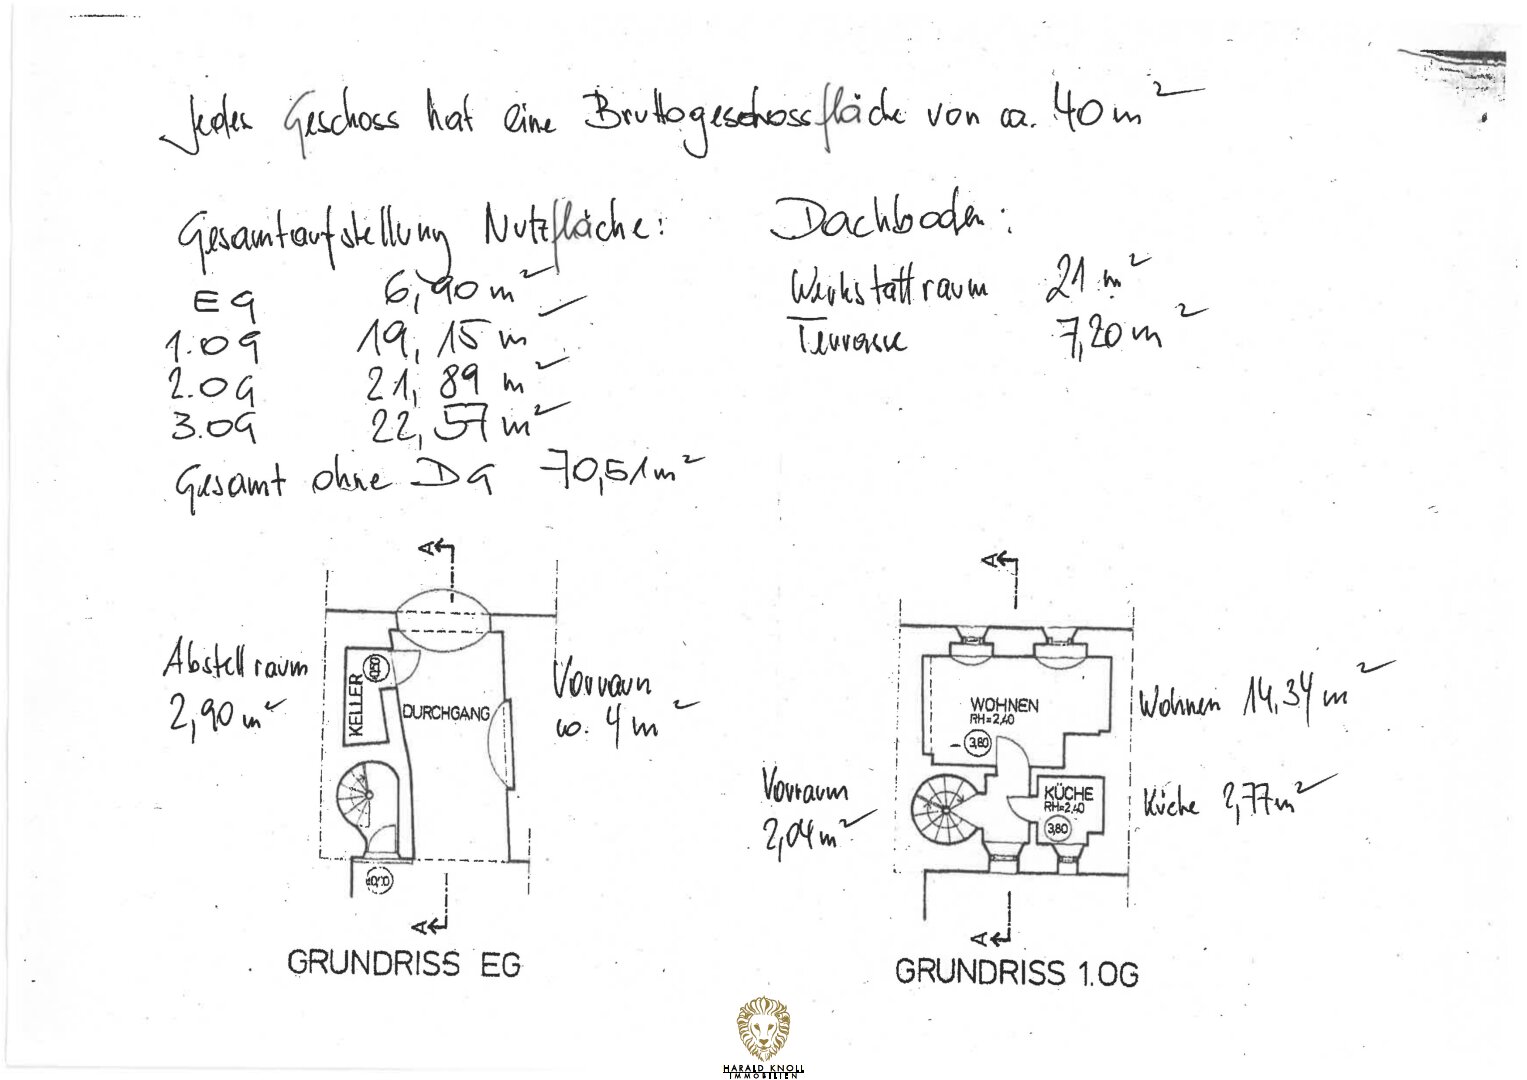 Jedes Geschoss hat eine Bruttogeschossfläche von ca. 40 m²
Gesamtaufstellung Nutzfläche:
EG 6,90 m²
1.OG 19,15 m²
2.OG 21,89 m²
3.OG 22,57 m²
Gesamt ohne DG 70,51 m²
Dachboden:
Werkstattraum 21 m²
Terrasse 7,20 m²
A
Abstellraum
2,90 m²
KELLER
DURCHGANG
Vorraum
ca. 4 m²
A
GRUNDRISS EG
A
WOHNEN
RH=2,40
3,80
Wohnen 14,34 m²
Vorraum
2,04 m²
KÜCHE
RH=2,40
3,80
Küche 2,77 m²
A
GRUNDRISS 1.OG
HARALD KNOLL
IMMOBILIEN